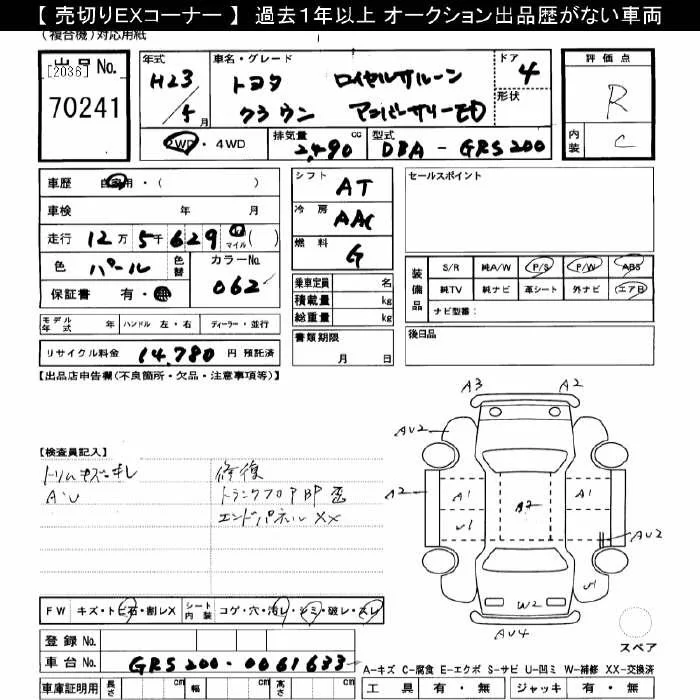 【 売切りEXコーナー 】 過去1年以上 オークション出品歴がない車両
(複合機)対応用紙
出品No.
[2036]
70241
年式
H23
/5
月
車名・グレード
トヨタ ロイヤルサルーン
クラウン アニバーサリーED
ドア
4
形状
評価点
R
内装
C
2WD・4WD
排気量
2,490
cc
型式
DBA - GRS200
車歴 自家用・( )
車検 年 月
走行 12万 5千 629 km マイル ( )
色 パール
色替
カラーNo.
062
保証書 有・無
シフト AT
冷房 AAC
燃料 G
乗車定員 名
積載量 kg
総重量 kg
書類期限
月 日
セールスポイント
装備品
S/R 純A/W P/S P/W ABS
純TV 純ナビ 革シート 外ナビ エアB
ナビ型番:
後日品
モデル年式 年 ハンドル 左・右 ディーラー・並行
リサイクル料金 14,780 円 預託済
【出品店申告欄(不良箇所・欠品・注意事項等)】
【検査員記入】
トリムキズ・キレ
AU
修復
トランクフロアBP歪
エンドパネルXX
A3 A2
AU2
A2 A1 A2 A1
U1 AU2
U1
W2
AU4
スペア
FW キズ・トビ石・割レX
シート内装
コゲ・穴・汚レ・シミ・破レ・スレ
登録No.
車台No. GRS200-0061633
A-キズ C-腐食 E-エクボ S-サビ U-凹ミ W-補修 XX-交換済
車庫証明用 長さ cm 幅 cm 高さ cm
工具 有・無 ジャッキ 有・無